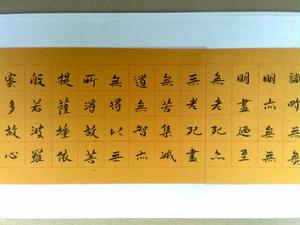 識畍無無
明亦無無
明盡迺至
無老死亦
無老死盡
無苦集滅
道無智亦
無得以无
所得故菩
提薩埵依
般若波羅
蜜多故心